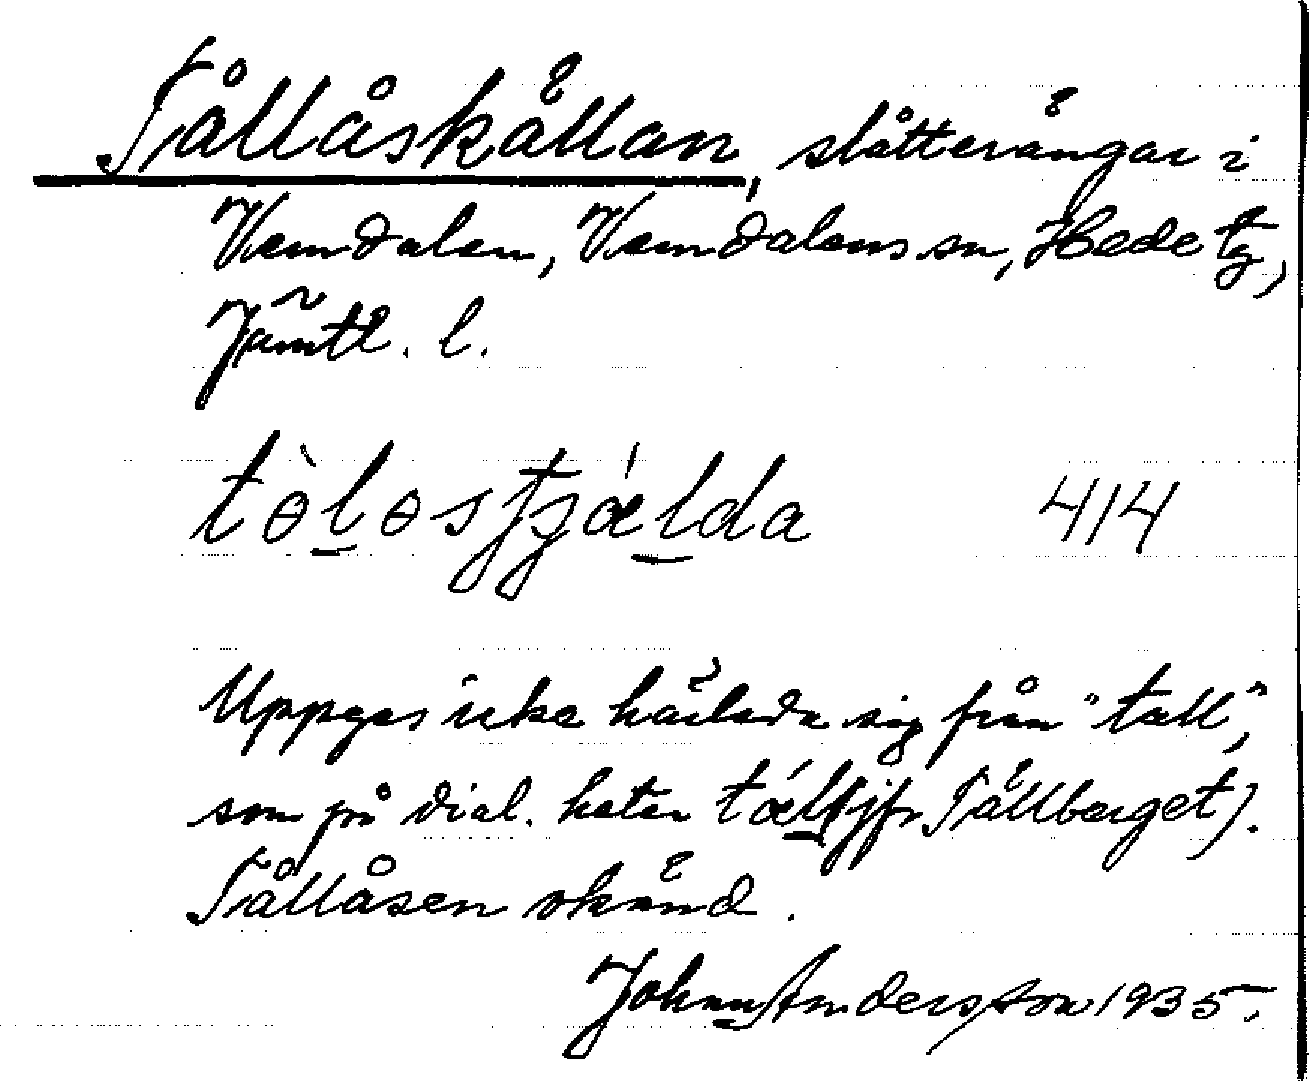 Tållåskällan, slåtterängar i
Vemdalen, Vemdalens sn, Hede tg,
Jämtl. l.
tɵ̀l̠ɵsʃjǽl̠da 414
Uppges icke härleda sig från "tall",
som på dial. heter tǽl̠l (jfr Tällberget).
Tållåsen okänd.
John Andersson 1935.